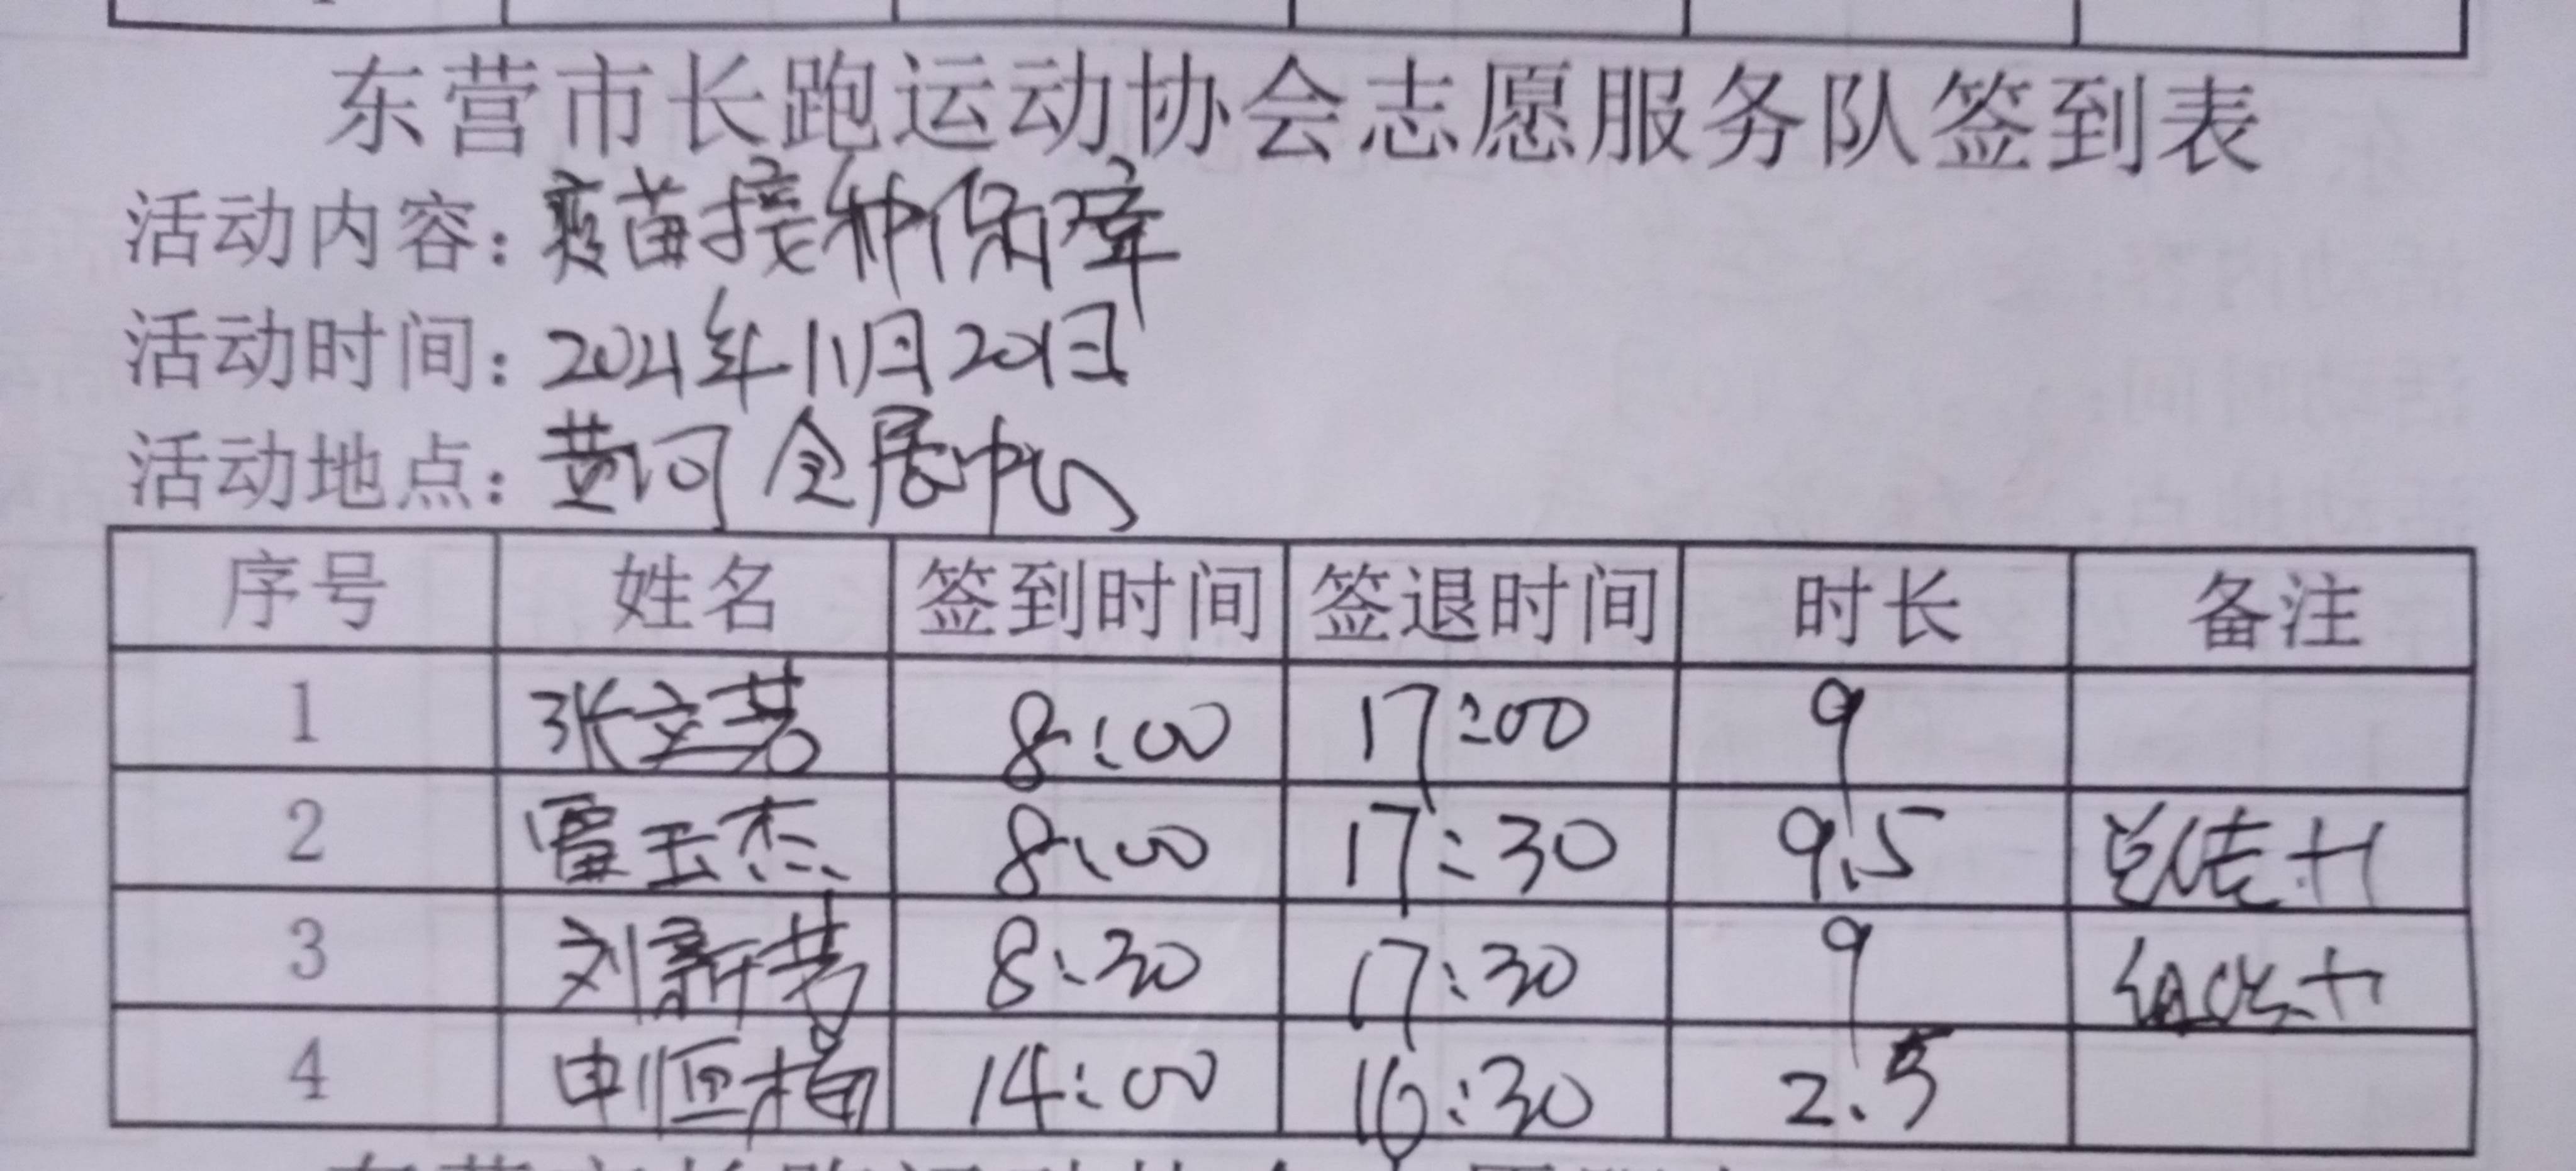 东营市长跑运动协会志愿服务队签到表
活动内容：疫苗接种保障
活动时间：2021年11月20日
活动地点：黄河会展中心
序号 姓名 签到时间 签退时间 时长 备注
1 张立芸 8:00 17:00 9
2 雷玉杰 8:00 17:30 9.5 总结+1
3 刘新芳 8:30 17:30 9
4 申恒梅 14:00 16:30 2.5